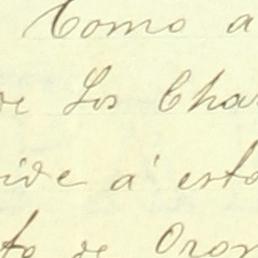 Como a
de Los Char
ide á esta
to de Oron